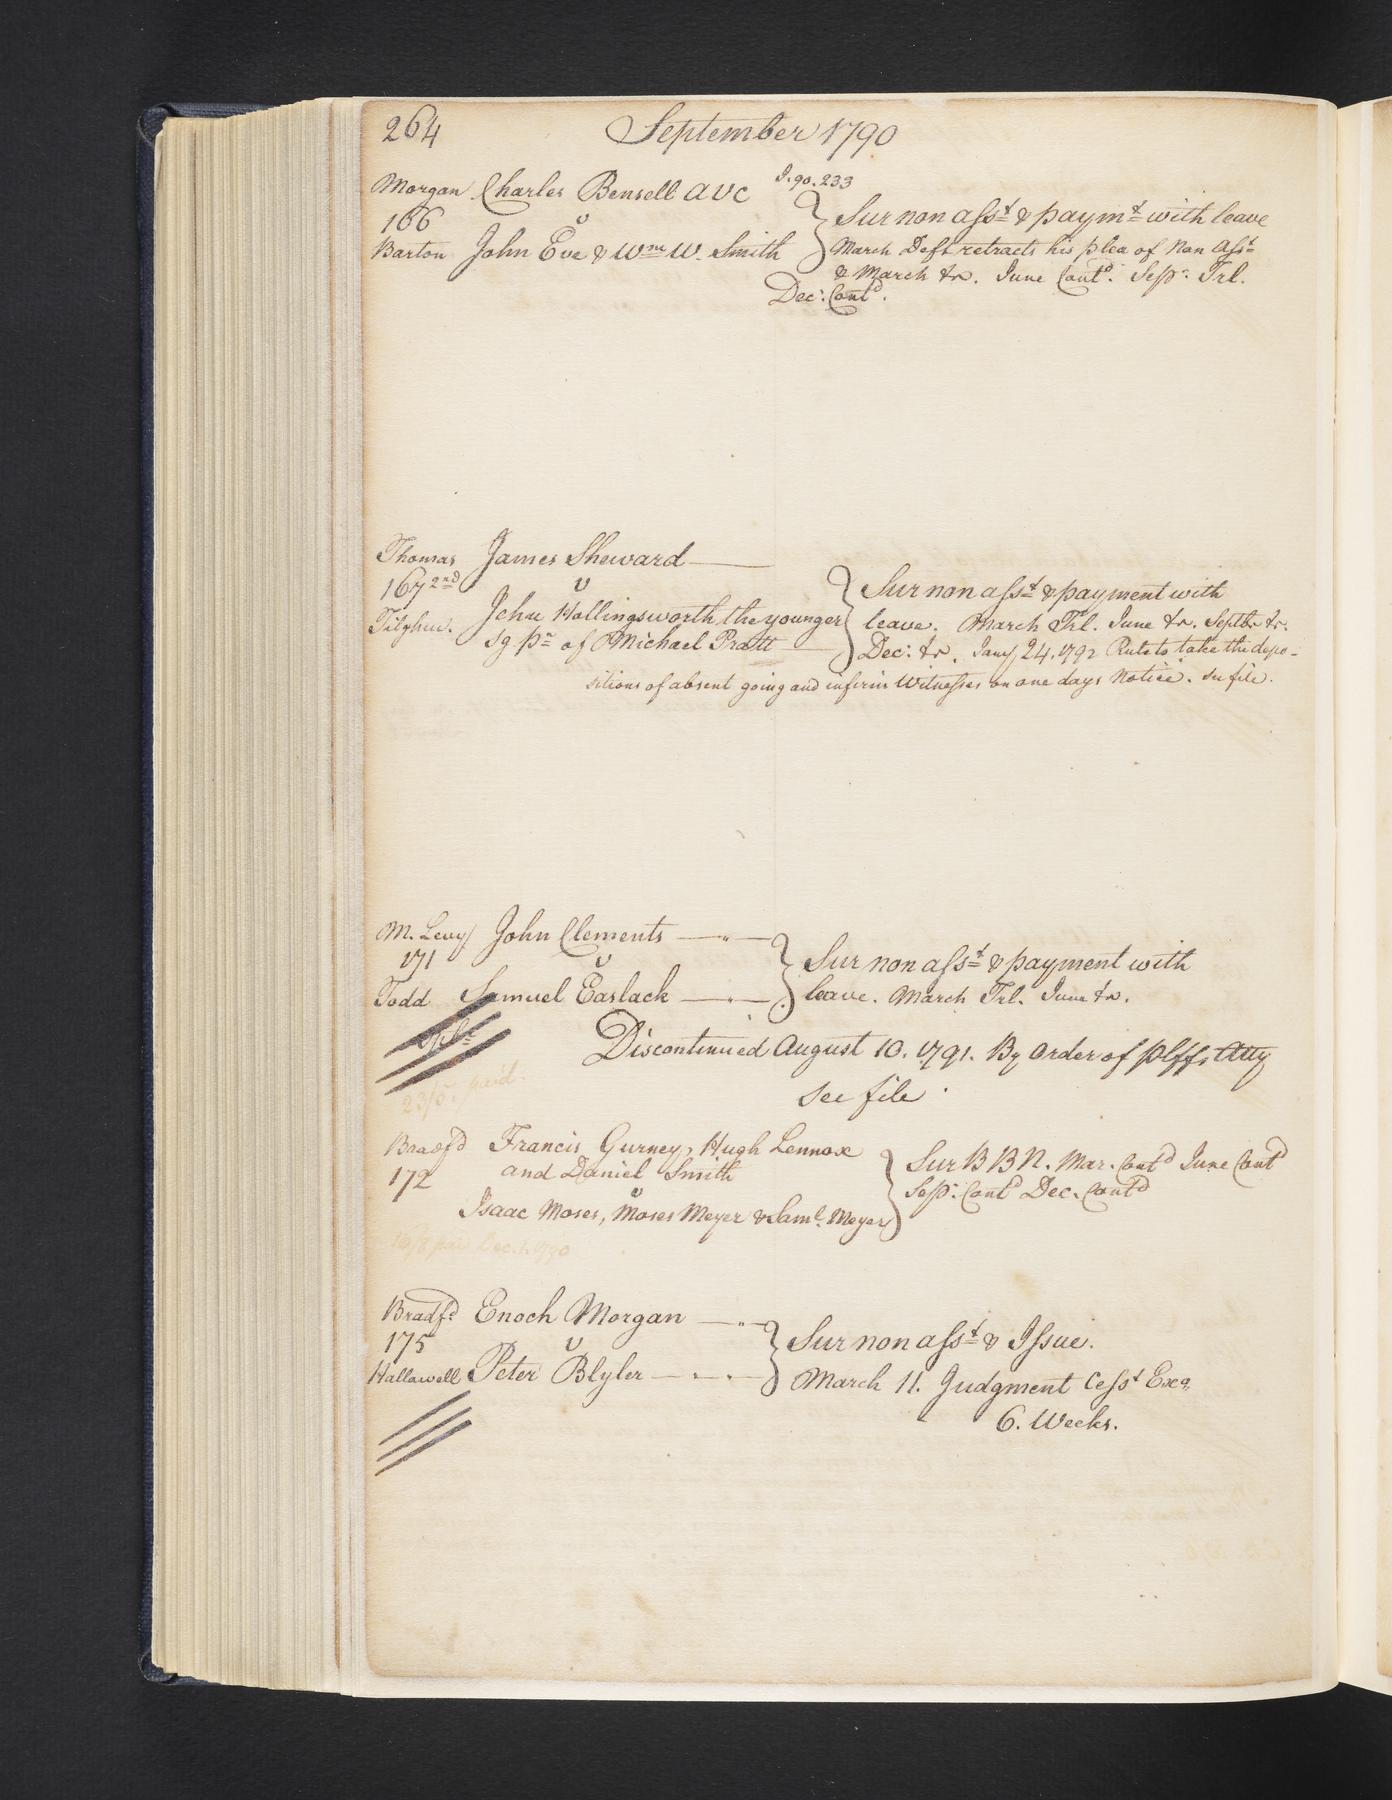 264 September 1790
Morgan Charles Bensell a v c J. 90. 233
166 v
Barton John Eve & Wm W. Smith
Sur non asst & paymt with leave
March Deft retracts his plea of Non Asst
& March tr. June Contd. Sepr. Trl.
Dec: Contd.
Thomas James Sheward
167 2nd v
Tilghm. John Hollingsworth the younger
Sg pr of Michael Pratt
Sur non asst & payment with
leave. March Trl. June tr. Septbr tr.
Dec: tr. Jany 24. 1792 Rule to take the depo-
sitions of absent going and infirm Witnesses on one days Notice. See file.
M. Levy John Clements
171 v
Todd Samuel Caslack
Sur non asst & payment with
leave. March Trl. June tr.
Discontinued August 10. 1791. By Order of Plffs Atty
See file
23/5. paid.
Bradfd Francis Gurney, Hugh Lennox
172 and Daniel Smith
v
Isaac Moses, Moses Meyer & Saml. Meyer
Sur B B N. Mar. Contd June Contd
Sepr. Contd Dec. Contd
16/8 paid Dec. 1. 1790
Bradfd Enoch Morgan
175 v
Hallowell Peter Blyler
Sur non asst & Issue.
March 11. Judgment Cesst Exo
6. Weeks.